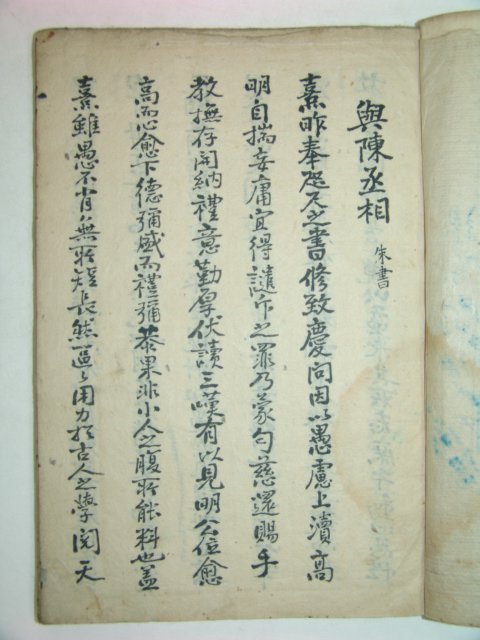 與陳丞相 朱書
熹昨奉咫尺之書修致慶問因以愚慮上瀆高
明自揣妄庸宜得譴斥之罪乃蒙勻慈還賜手
教撫存開納禮意勤厚伏讀三嘆有以見明公位愈
高而心愈下德彌盛而禮彌恭果非小人之腹所能料也盖
熹雖愚不肖無所短長然區〻用力於古人之學閱天